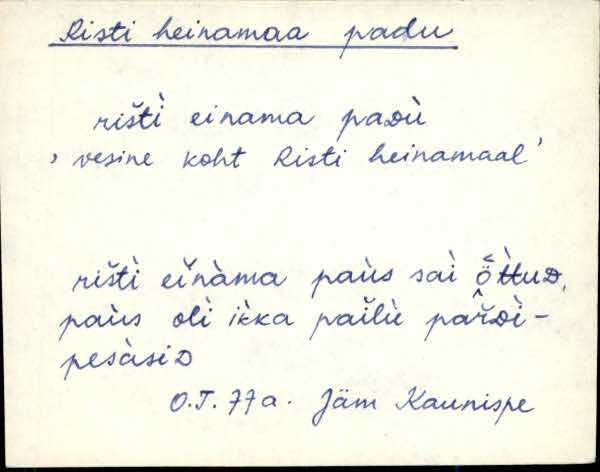 Risti heinamaa padu
rištì̬ einama paᴅù
' vesine koht Risti heinamaal '
rištì eǐnàma paùs saì
paùs olì ìkka paǐlù
pesàsiᴅ
O.T. 77a. Jäm Kaunispe